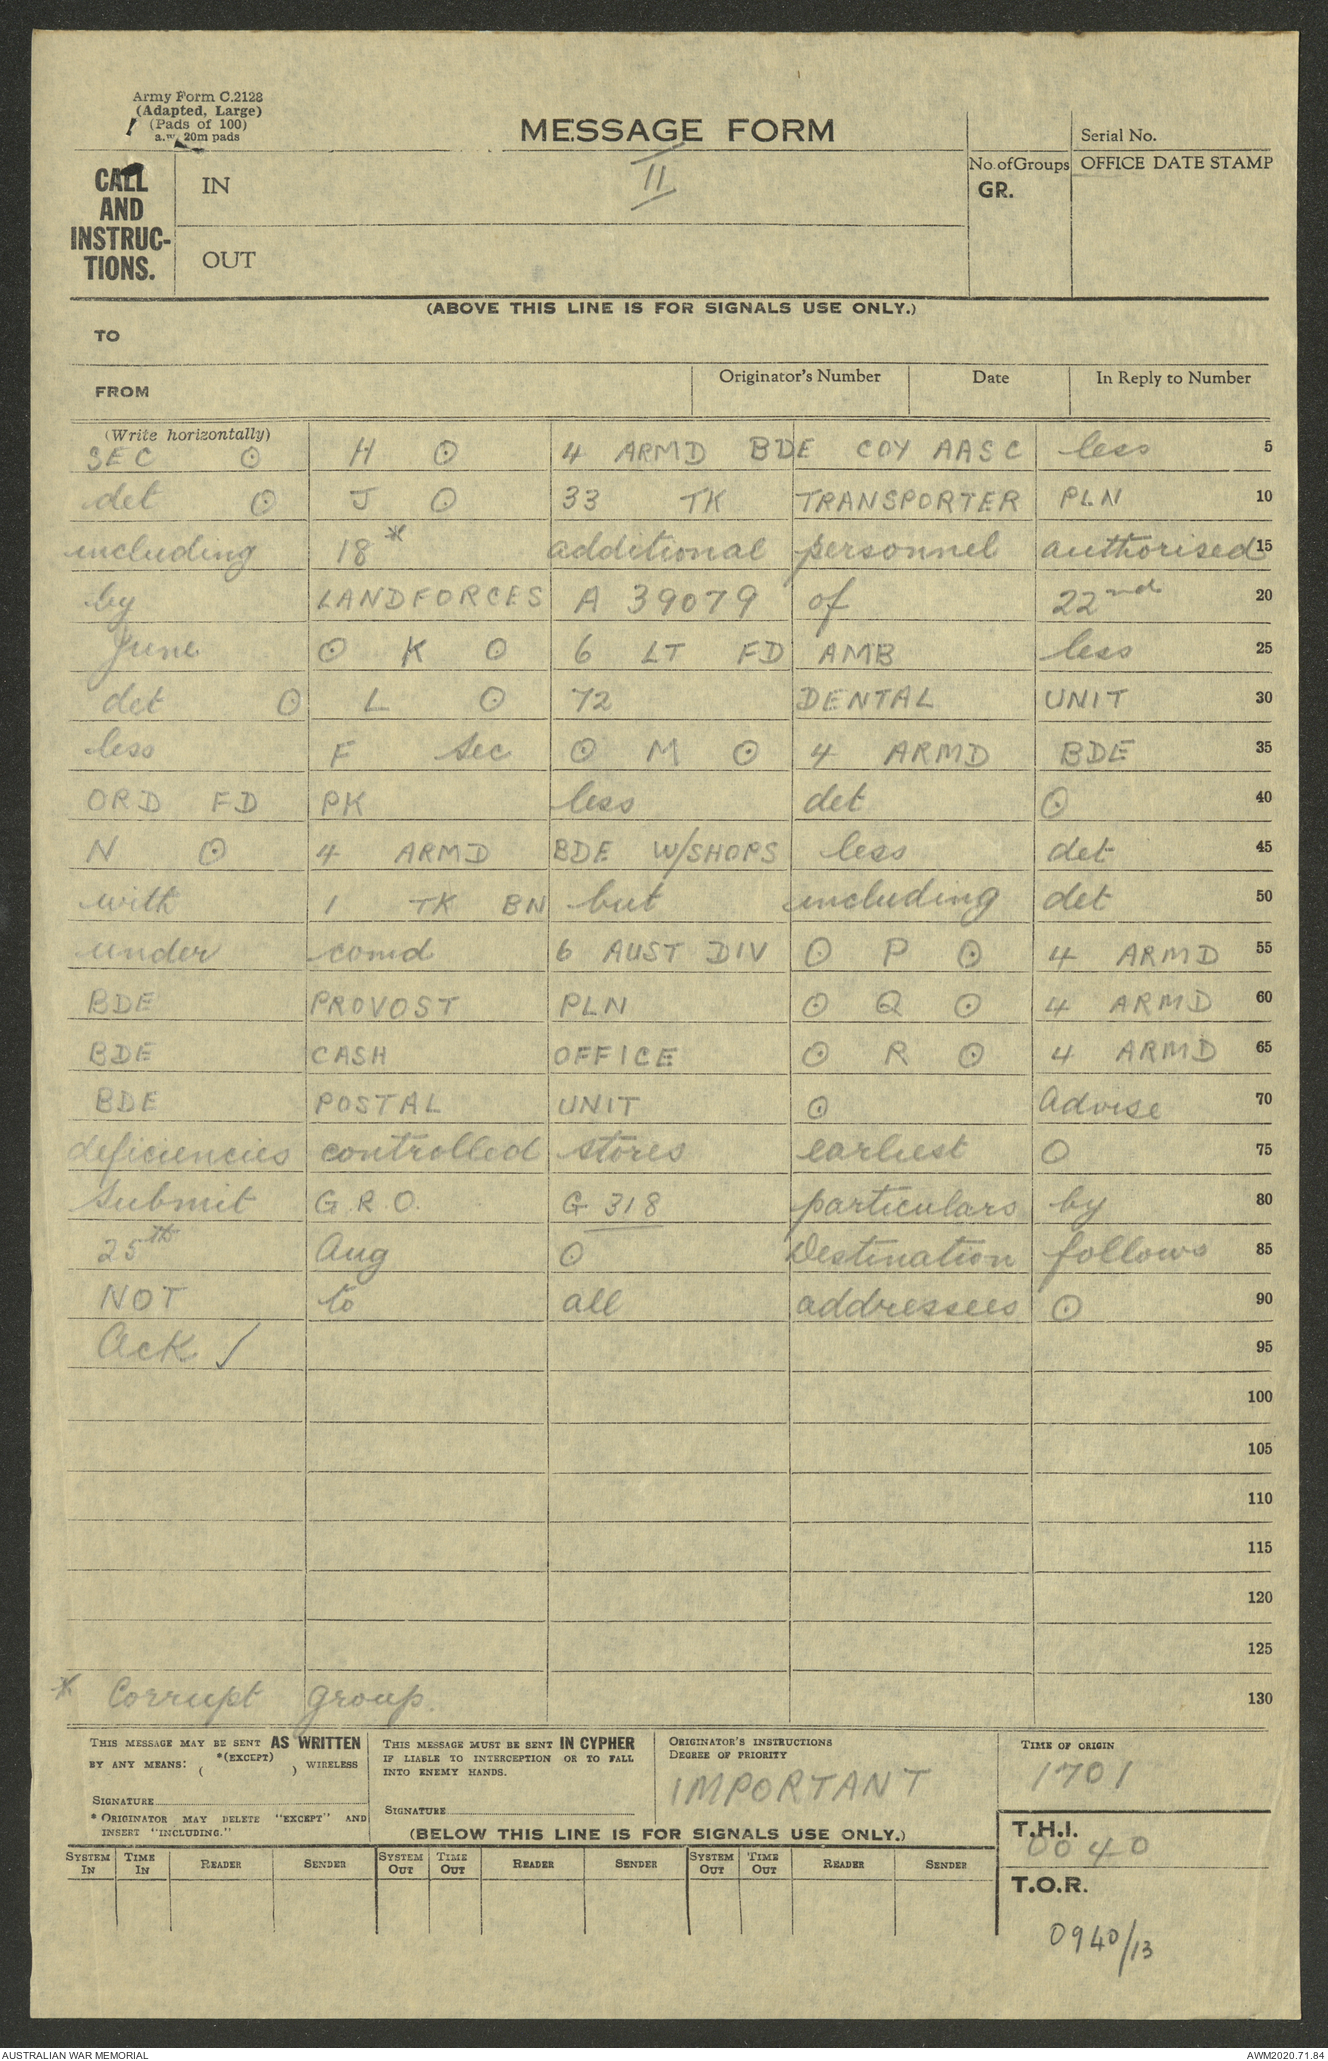 Army Form C.2128
(Adapted, Large)
(Pads of 100)
a.w. 20m pads
MESSAGE FORM
II
Serial No.
CALL AND INSTRUC-TIONS.
IN
OUT
No. of Groups
GR.
OFFICE DATE STAMP
(ABOVE THIS LINE IS FOR SIGNALS USE ONLY.)
TO
FROM
Originator's Number
Date
In Reply to Number
(Write horizontally)
SEC ⊙ H ⊙ 4 ARMD BDE COY AASC less 5
det ⊙ J ⊙ 33 TK TRANSPORTER PLN 10
including 18* additional personnel authorised 15
by LANDFORCES A 39079 of 22nd 20
June ⊙ K ⊙ 6 LT FD AMB less 25
det ⊙ L ⊙ 72 DENTAL UNIT 30
less F Sec ⊙ M ⊙ 4 ARMD BDE 35
ORD FD PK less det ⊙ 40
N ⊙ 4 ARMD BDE W/SHOPS less det 45
with 1 TK BN but including det 50
under comd 6 AUST DIV ⊙ P ⊙ 4 ARMD 55
BDE PROVOST PLN ⊙ Q ⊙ 4 ARMD 60
BDE CASH OFFICE ⊙ R ⊙ 4 ARMD 65
BDE POSTAL UNIT ⊙ Advise 70
deficiencies controlled stores earliest ⊙ 75
Submit G.R.O. G 318 particulars by 80
25th Aug ⊙ Destination follows 85
NOT to all addressees ⊙ 90
Ack /
95
100
105
110
115
120
125
* Corrupt group. 130
THIS MESSAGE MAY BE SENT AS WRITTEN
BY ANY MEANS: *(EXCEPT) ( ) WIRELESS
SIGNATURE
* ORIGINATOR MAY DELETE "EXCEPT" AND
INSERT "INCLUDING."
THIS MESSAGE MUST BE SENT IN CYPHER
IF LIABLE TO INTERCEPTION OR TO FALL
INTO ENEMY HANDS.
SIGNATURE
ORIGINATOR'S INSTRUCTIONS
DEGREE OF PRIORITY
IMPORTANT
TIME OF ORIGIN
1701
(BELOW THIS LINE IS FOR SIGNALS USE ONLY.)
T.H.I.
0040
SYSTEM IN TIME IN READER SENDER SYSTEM OUT TIME OUT READER SENDER SYSTEM OUT TIME OUT READER SENDER
T.O.R.
0940/13
AUSTRALIAN WAR MEMORIAL
AWM2020.71.84